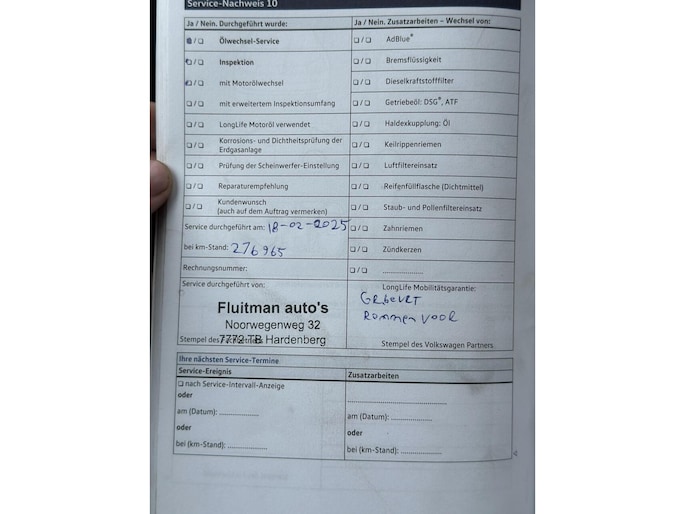 Service-Nachweis 10
Ja / Nein. Durchgeführt wurde:
Ölwechsel-Service
Inspektion
mit Motorölwechsel
mit erweitertem Inspektionsumfang
LongLife Motoröl verwendet
Korrosions- und Dichtheitsprüfung der
Erdgasanlage
Prüfung der Scheinwerfer-Einstellung
Reparaturempfehlung
Kundenwunsch
(auch auf dem Auftrag vermerken)
Service durchgeführt am: 18-02-2025
bei km-Stand: 276965
Rechnungsnummer:
Service durchgeführt von:
Fluitman auto's
Noorwegenweg 32
7772 TB Hardenberg
Stempel des
Ja / Nein. Zusatzarbeiten – Wechsel von:
AdBlue®
Bremsflüssigkeit
Dieselkraftstofffilter
Getriebeöl: DSG®, ATF
Haldexkupplung: Öl
Keilrippenriemen
Luftfiltereinsatz
Reifenfüllflasche (Dichtmittel)
Staub- und Pollenfiltereinsatz
Zahnriemen
Zündkerzen
....................
LongLife Mobilitätsgarantie:
Stempel des Volkswagen Partners
Ihre nächsten Service-Termine
Service-Ereignis
nach Service-Intervall-Anzeige
oder
am (Datum): ...................
oder
bei (km-Stand): ...................
Zusatzarbeiten
am (Datum): ...................
oder
bei (km-Stand): ...................